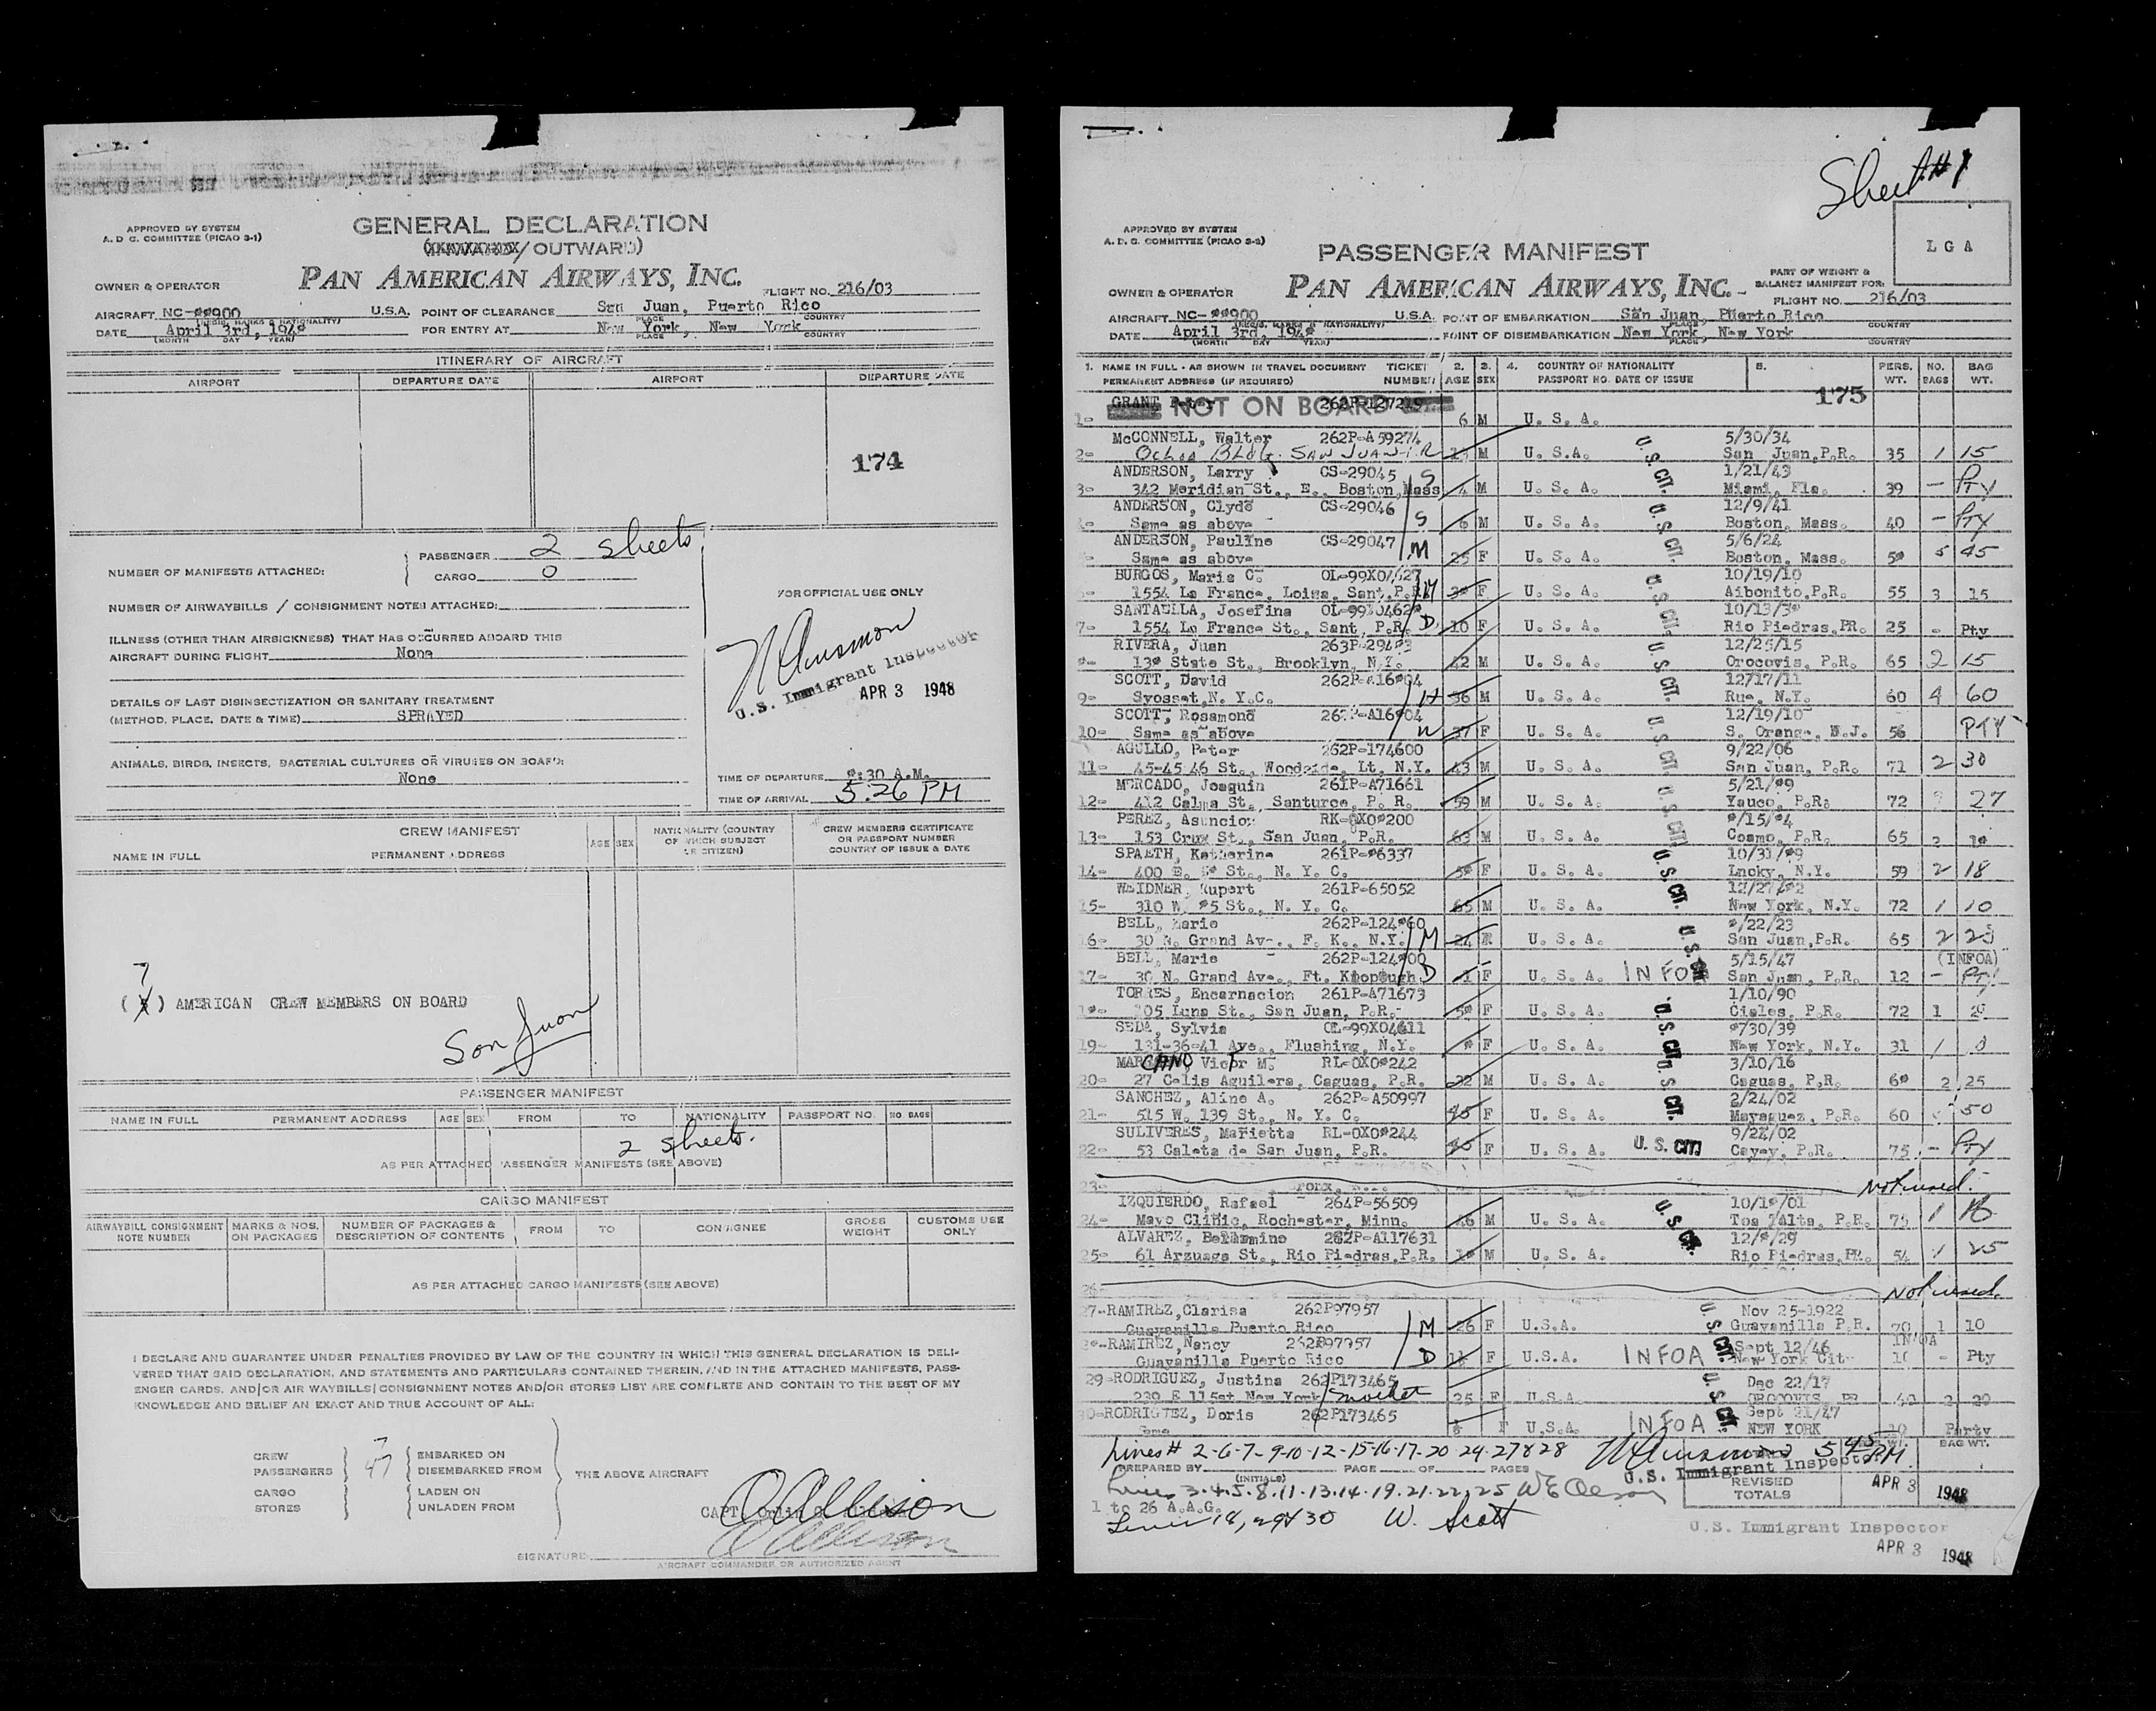 APPROVED BY SYSTEM
A. D. C. COMMITTEE (PICAO 3-1)
GENERAL DECLARATION
/ OUTWARD)
PAN AMERICAN AIRWAYS, INC.
OWNER & OPERATOR
FLIGHT NO. 216/03
AIRCRAFT NC- 900 U.S.A. POINT OF CLEARANCE San Juan, Puerto Rico
(REGIS. MARKS & NATIONALITY) PLACE COUNTRY
DATE April 3rd, FOR ENTRY AT New York, New York
(MONTH DAY YEAR) PLACE COUNTRY
ITINERARY OF AIRCRAFT
AIRPORT DEPARTURE DATE AIRPORT DEPARTURE DATE
174
NUMBER OF MANIFESTS ATTACHED:
PASSENGER 2 sheets
CARGO 0
NUMBER OF AIRWAYBILLS / CONSIGNMENT NOTES ATTACHED:
ILLNESS (OTHER THAN AIRSICKNESS) THAT HAS OCCURRED ABOARD THIS
AIRCRAFT DURING FLIGHT None
DETAILS OF LAST DISINSECTIZATION OR SANITARY TREATMENT
(METHOD, PLACE, DATE & TIME) SPRAYED
ANIMALS, BIRDS, INSECTS, BACTERIAL CULTURES OR VIRUSES ON BOARD:
None
FOR OFFICIAL USE ONLY
U.S. Immigrant Inspector
APR 3 1948
TIME OF DEPARTURE :30 A.M.
TIME OF ARRIVAL 5:26 PM
CREW MANIFEST
NAME IN FULL PERMANENT ADDRESS AGE SEX
NATIONALITY (COUNTRY OF WHICH SUBJECT OR CITIZEN)
CREW MEMBERS CERTIFICATE OR PASSPORT NUMBER COUNTRY OF ISSUE & DATE
7
( ) AMERICAN CREW MEMBERS ON BOARD
San Juan
PASSENGER MANIFEST
NAME IN FULL PERMANENT ADDRESS AGE SEX FROM TO NATIONALITY PASSPORT NO. NO. BAGS
2 sheets.
AS PER ATTACHED PASSENGER MANIFESTS (SEE ABOVE)
CARGO MANIFEST
AIRWAYBILL CONSIGNMENT NOTE NUMBER MARKS & NOS. ON PACKAGES NUMBER OF PACKAGES & DESCRIPTION OF CONTENTS FROM TO CONSIGNEE GROSS WEIGHT CUSTOMS USE ONLY
AS PER ATTACHED CARGO MANIFESTS (SEE ABOVE)
I DECLARE AND GUARANTEE UNDER PENALTIES PROVIDED BY LAW OF THE COUNTRY IN WHICH THIS GENERAL DECLARATION IS DELI-
VERED THAT SAID DECLARATION, AND STATEMENTS AND PARTICULARS CONTAINED THEREIN, AND IN THE ATTACHED MANIFESTS, PASS-
ENGER CARDS, AND/OR AIR WAYBILLS/CONSIGNMENT NOTES AND/OR STORES LIST ARE COMPLETE AND CONTAIN TO THE BEST OF MY
KNOWLEDGE AND BELIEF AN EXACT AND TRUE ACCOUNT OF ALL:
CREW 7 EMBARKED ON
PASSENGERS 47 DISEMBARKED FROM THE ABOVE AIRCRAFT
CARGO LADEN ON
STORES UNLADEN FROM
CAPT.
SIGNATURE
AIRCRAFT COMMANDER OR AUTHORIZED AGENT
Sheet #1
APPROVED BY SYSTEM
A. D. C. COMMITTEE (PICAO 3-2)
PASSENGER MANIFEST
LGA
OWNER & OPERATOR
PAN AMERICAN AIRWAYS, INC.
PART OF WEIGHT & BALANCE MANIFEST FOR:
FLIGHT NO. 216/03
AIRCRAFT NC- 900 U.S.A. POINT OF EMBARKATION San Juan, Puerto Rico
DATE April 3rd, POINT OF DISEMBARKATION New York, New York
(MONTH DAY YEAR) PLACE COUNTRY
1. NAME IN FULL - AS SHOWN IN TRAVEL DOCUMENT TICKET 2. 3. 4. COUNTRY OF NATIONALITY 5. PERS. NO. BAG
PERMANENT ADDRESS (IF REQUIRED) NUMBER AGE SEX PASSPORT NO. DATE OF ISSUE WT. BAGS WT.
175
GRANT, Peter NOT ON BOARD
1- 6 M U. S. A.
McCONNELL, Walter 262P-A59274 5/30/34
2- Ochoa Bldg. San Juan P.R. M U. S.A. U.S. CIT. San Juan, P.R. 35 1 15
ANDERSON, Larry CS-29045 S 1/21/43
3- 342 Meridian St., E., Boston, Mass 4 M U. S. A. U.S. CIT. Miami, Fla. 39 - Pty
ANDERSON, Clyde CS-29046 S 12/9/41
Same as above 6 M U. S. A. U.S. CIT. Boston, Mass. 40 - Pty
ANDERSON, Pauline CS-29047 M 5/6/24
Same as above 25 F U. S. A. Boston, Mass. 5 45
BURGOS, Maria C. OL-99X04627 M 10/19/10
1554 La France, Loiza, Sant. P.R. F U. S. A. U.S. CIT. Aibonito, P.R. 55 3 15
SANTAELLA, Josefina D 10/13/3
7- 1554 La France St., Sant, P.R. 10 F U. S. A. Rio Piedras, PR. 25 - Pty
RIVERA, Juan 12/25/15
State St., Brooklyn, N.Y. M U. S. A. U.S. CIT. Orocovis, P.R. 65 2 15
SCOTT, David 12/17/11
9- Syosset, N. Y.C. H 36 M U. S. A. Rye, N.Y. 60 4 60
SCOTT, Rosamond 12/19/10
10- Same as above W 37 F U. S. A. U.S. CIT. S. Orange, N.J. 56 PTY
AGULLO, Peter 262P-174600 9/22/06
11- 45-45 46 St., Woodside, Lt, N.Y. 43 M U. S. A. San Juan, P.R. 71 2 30
MERCADO, Joaquin 261P-A71661
12- 412 Calma St., Santurce, P. R. 59 M U. S. A. U.S. CIT. Yauco, P.R. 72 27
PEREZ, Asuncion
13- 153 Cruz St., San Juan, P.R. 63 M U. S. A. Coamo, P.R. 65 2
SPAETH, Katherine
14- 400 E. St., N. Y. C. F U. S. A. U.S. CIT. N.Y. 59 2 18
WEIDNER, Rupert 261P-65052
15- 310 W. St., N. Y. C. 65 M U. S. A. New York, N.Y. 72 1 10
BELL, Marie
16- 30 N. Grand Av., N.Y. M 24 F U. S. A. U.S. San Juan, P.R. 65 2
BELL, Marie D 5/15/47 (INFOA)
17- 30 N. Grand Ave., Ft. 1 F U. S. A. INFOA San Juan, P.R. 12 - Pty
TORRES, Encarnacion 261P-A71673 1/10/90
205 Luna St., San Juan, P.R. F U. S. A. U.S. CIT. Ciales, P.R. 72 1
SEDA, Sylvia OL-99X04611
19- 131-36-41 Ave., Flushing, N.Y. F U. S. A. New York, N.Y. 31 1
MARCANO Victor M. 3/10/16
20- 27 Celis Aguilera, Caguas, P.R. M U. S. A. U.S. CIT. Caguas, P.R. 2 25
SANCHEZ, Aline A. 262P-A50997 2/24/02
21- 515 W. 139 St., N. Y. C. F U. S. A. Mayaguez, P.R. 60 50
SULIVERES, Marietta 9/22/02
22- 53 Caleta de San Juan, P.R. F U. S. A. U. S. CIT. Cayey, P.R. 75 - Pty
23- Not used.
IZQUIERDO, Rafael 264P-56509
24- Mayo Clinic, Rochester, Minn. 46 M U. S. A. U.S. CIT. Toa Alta, P.R. 75 1
ALVAREZ, 262P-A117631
25- 61 Arzuaga St., Rio Piedras, P.R. M U. S. A. Rio Piedras, PR. 54 1 25
26- Not used.
27-RAMIREZ, Clarisa 262P97957 M Nov 25-1922
Guayanilla Puerto Rico 26 F U.S.A. U.S. CIT. Guayanilla P.R. 70 1 10
RAMIREZ, Nancy 262P97957 D Sept 12/46 INFOA
Guayanilla Puerto Rico F U.S.A. INFOA New York City - Pty
29-RODRIGUEZ, Justina 262P173465 Dec 22/17
239 E 115st New York mother 25 F U.S.A. U.S. CIT. OROCOVIS PR 40 2 20
30-RODRIGUEZ, Doris 262P173465 Sept 21/47
Same F U.S.A. INFOA NEW YORK 10 Party
Lines # 2-6-7-9-10-12-15-16-17-20-24-27 & 28 5 45 PM BAG WT.
PREPARED BY (INITIALS) PAGE OF PAGES
U.S. Immigrant Inspector
Lines 3.4.5.8.11.13.14.19.21.22.25
REVISED TOTALS
APR 3 1948
1 to 26 A.A.G.
Lines 18, 29 & 30 W. Scott
U.S. Immigrant Inspector
APR 3 1948